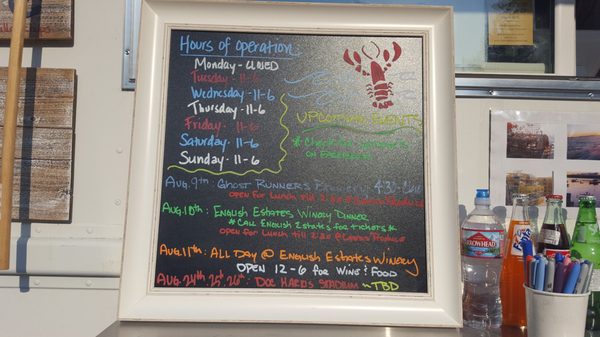 Hours of operation
Monday - CLOSED
Tuesday - 11-6
Wednesday - 11-6
Thursday - 11-6
Friday - 11-6
Saturday - 11-6
Sunday - 11-6
UPCOMING EVENTS
* Check for updates
on Facebook
Aug. 9th: Ghost Runners Brewery 4:30-
Open for Lunch till
Aug. 10th: English Estates Winery Dinner
* Call English Estates for tickets *
Open for Lunch till
Aug. 11th: All Day @ English Estates Winery
Open 12-6 for Wine & Food
Aug. 24th, 25th, 26th: Doc Harris Stadium ~ TBD
ARROWHEAD